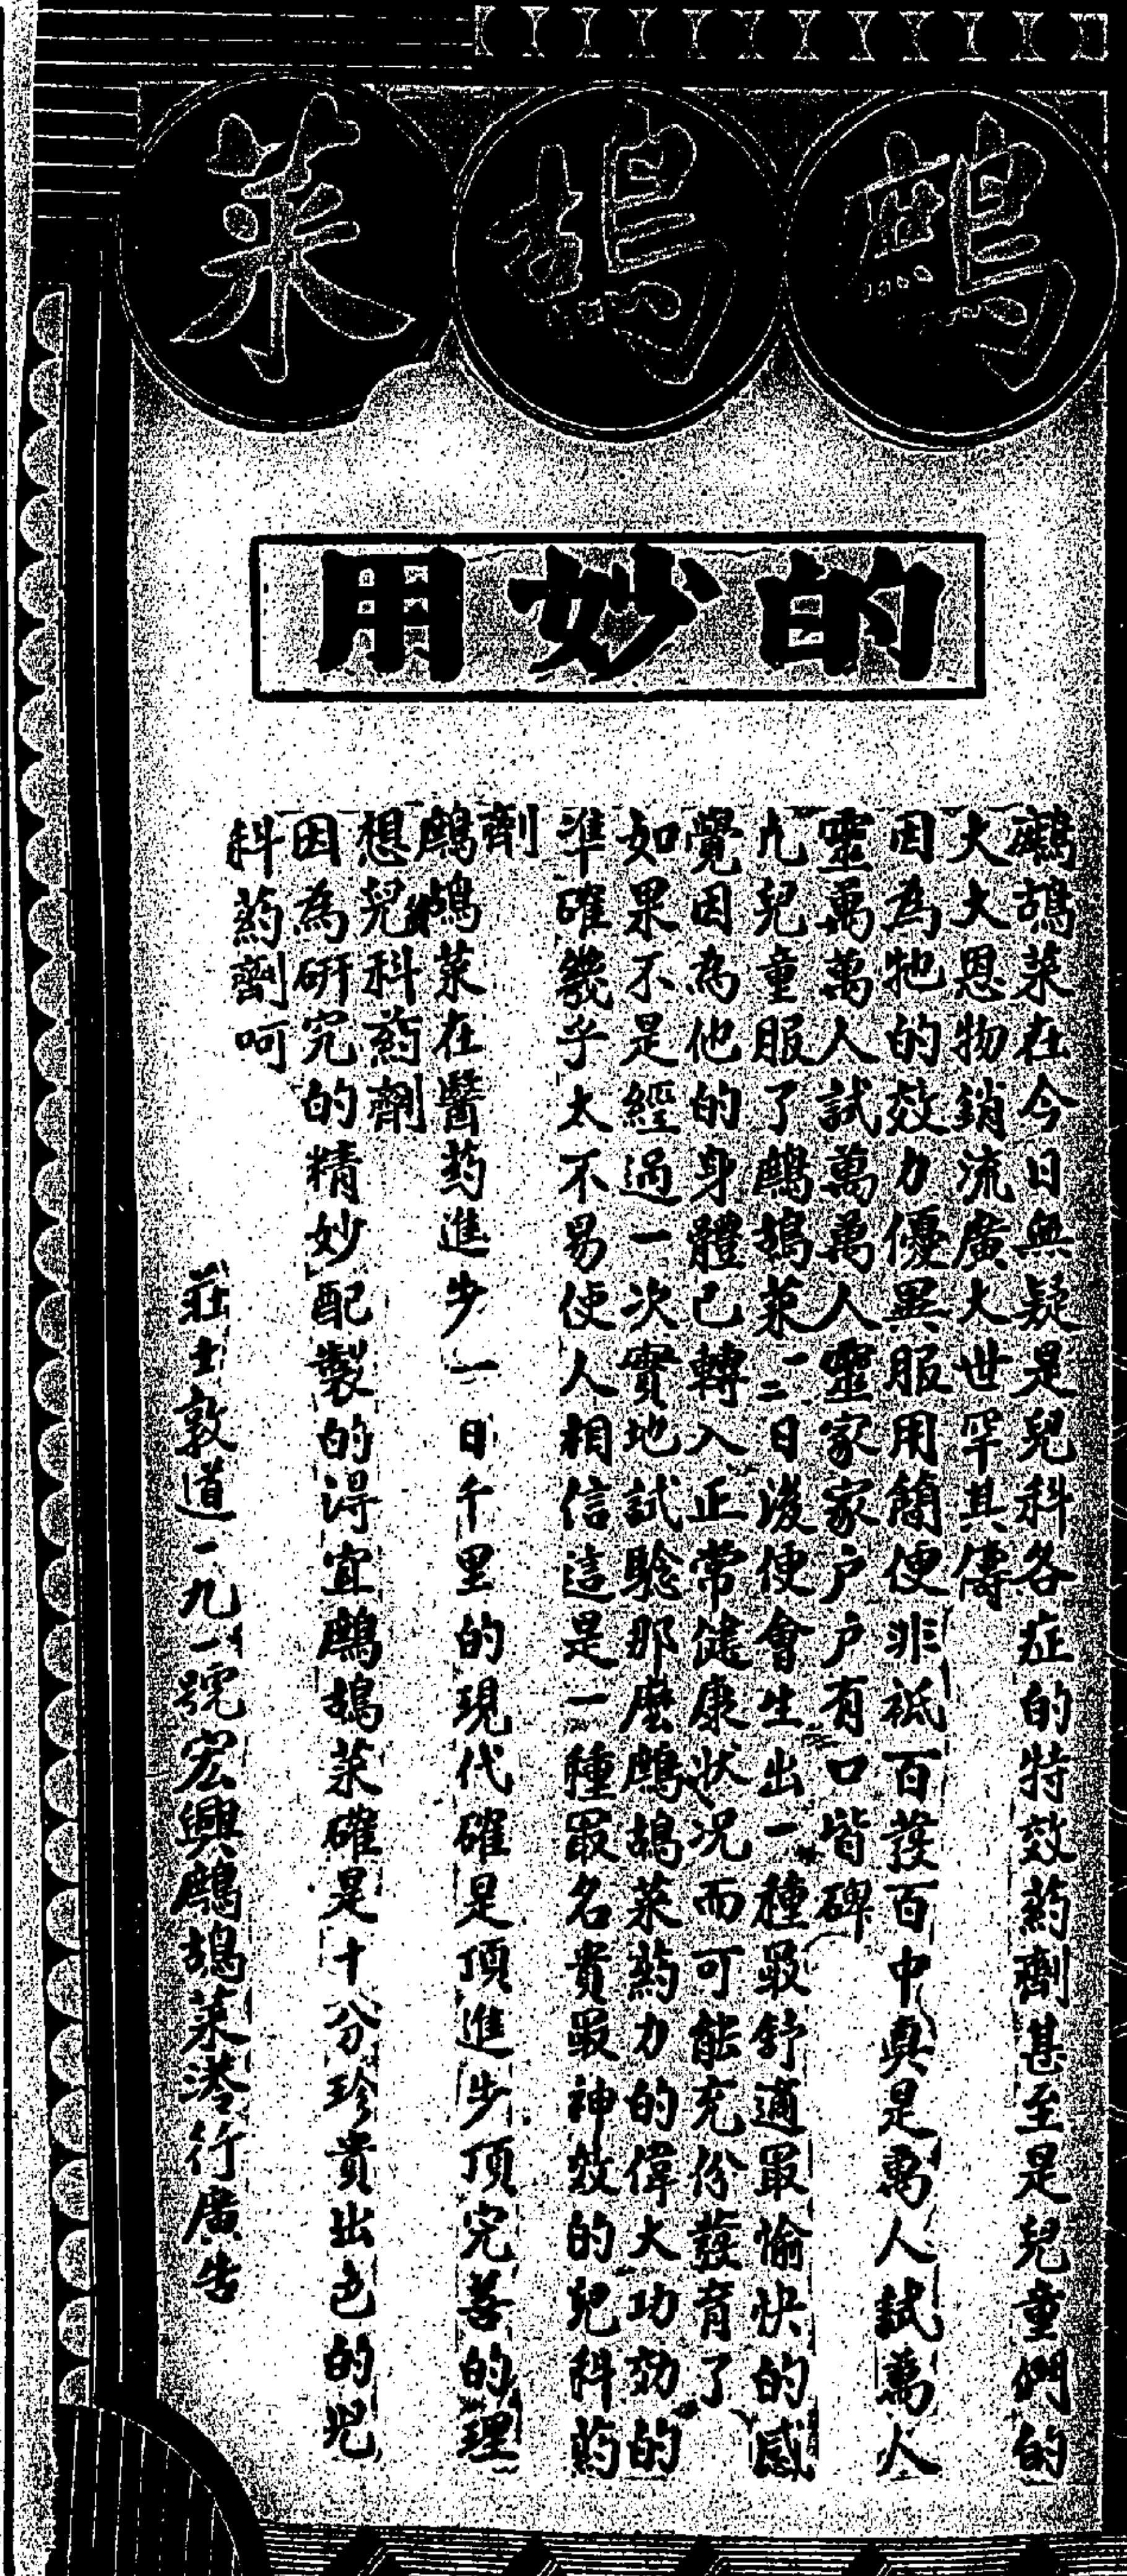 鷓鴣菜
的妙用
鷓鴣菜在今日無疑是兒科各症的特效葯劑甚至是兒童們的
大大恩物銷流廣大世罕其儔
因為牠的效力優異服用簡便非祗百發百中真是萬人試萬人
靈萬萬人試萬萬人靈家家户户有口皆碑
凡兒童服了鷓鴣菜一二日後便會生出一種最舒適最愉快的感
覺因為他的身體已轉入正常健康狀况而可能充份發育了
如果不是經過一次實地試驗那麼鷓鴣菜葯力的偉大功効的
準確幾乎太不易使人相信這是一種最名貴最神效的兒科葯
劑
鷓鴣菜在醫葯進步一日千里的現代確是頂進步頂完善的理
想兒科葯劑
因為研究的精妙配製的得宜鷓鴣菜確是十分珍貴出色的兒
科葯劑呵
莊士敦道一九一號宏興鷓鴣菜港行廣告